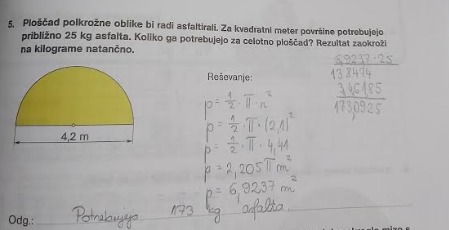 5. Ploščad polkrožne oblike bi radi asfaltirali. Za kvadratni meter površine potrebujejo
približno 25 kg asfalta. Koliko ga potrebujejo za celotno ploščad? Rezultat zaokroži
na kilograme natančno.
6,9237 · 25
138474
346185
173,0925
Reševanje:
p = 1/2 · π · r²
p = 1/2 · π · (2,1)²
p = 1/2 · π · 4,41
p = 2,205 π m²
p = 6,9237 m²
4,2 m
Odg.: Potrebujejo 173 kg asfalta.